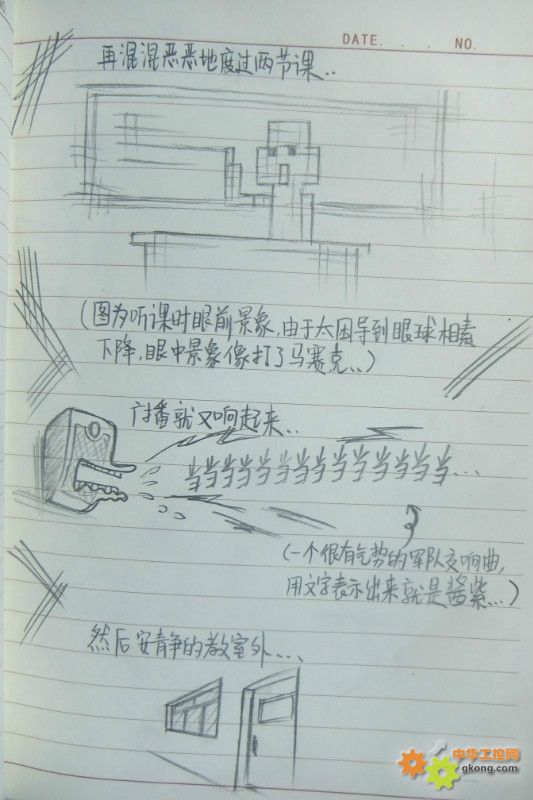 DATE. . . . NO.
再混混恶恶地度过两节课..
(图为听课时眼前景象,由于太困导到眼球相素
下降,眼中景象像打了马赛克...)
广播就又响起来...
当当当当当当当当当当当当当当当...
(一个很有气势的军队交响曲,
用文字表示出来就是酱紫...)
然后安静的教室外....
中华工控网
gkong.com